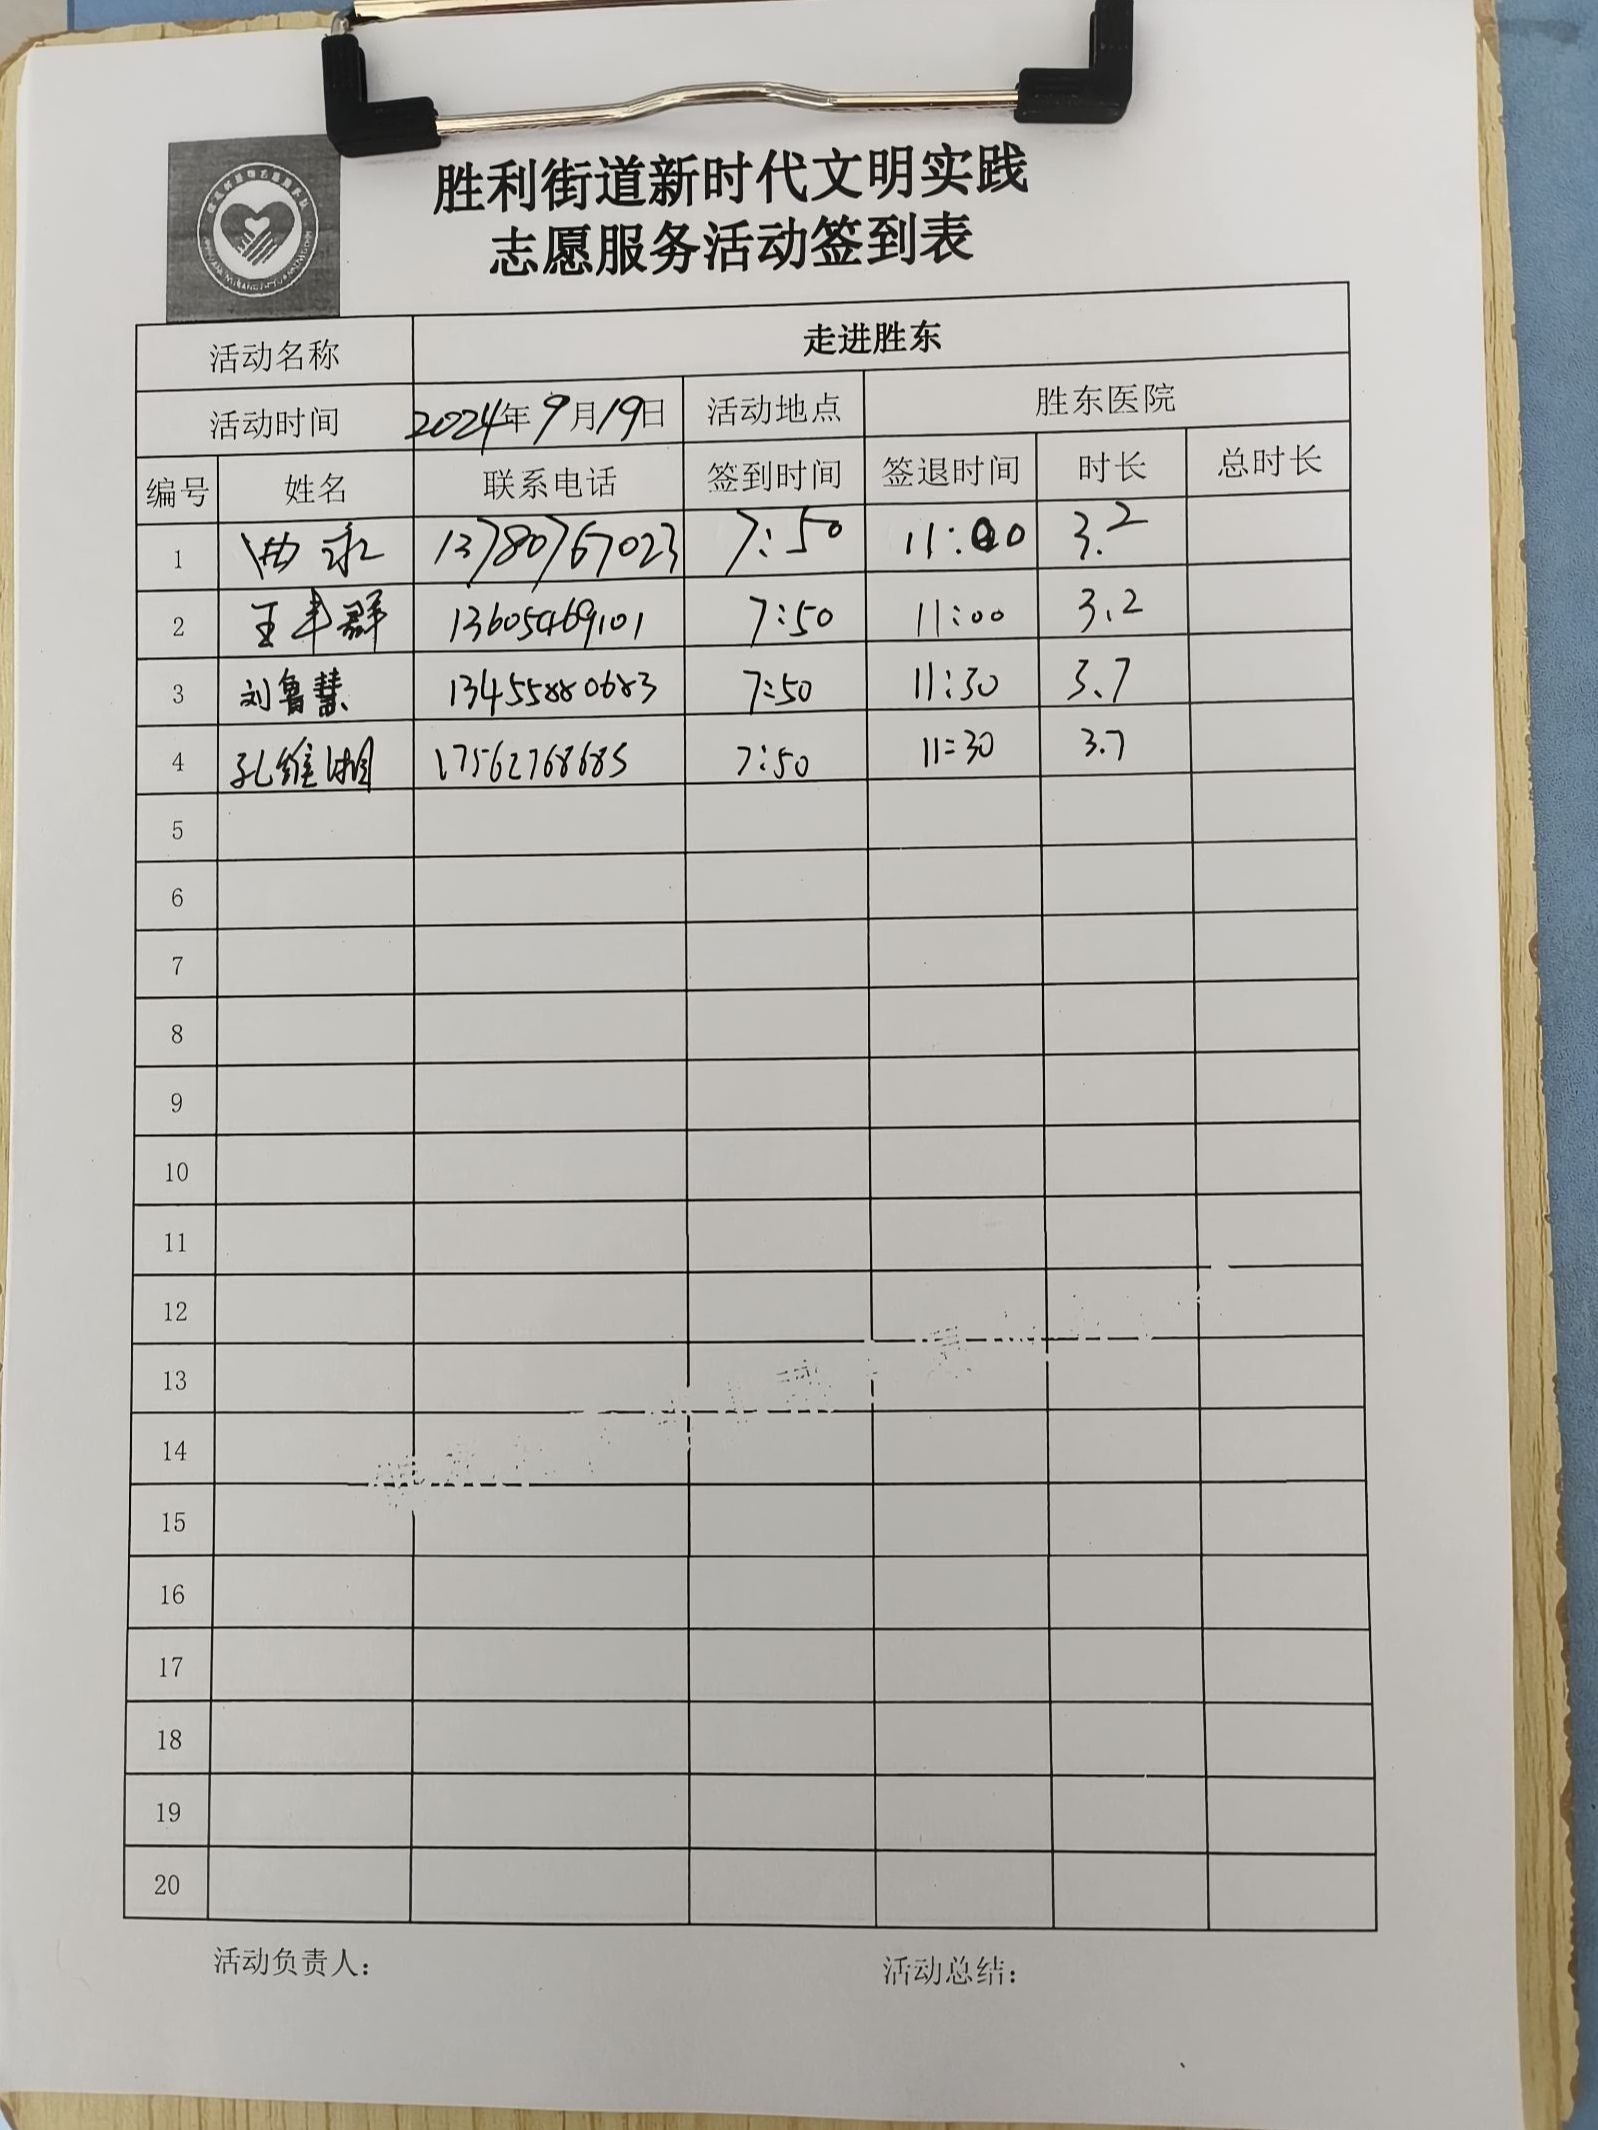 胜利街道新时代文明实践
志愿服务活动签到表
活动名称 走进胜东
活动时间 2024年9月19日 活动地点 胜东医院
编号 姓名 联系电话 签到时间 签退时间 时长 总时长
1 曲永 13780767023 7:50 11:00 3.2
2 王丰群 13605469101 7:50 11:00 3.2
3 刘鲁慧 13455880683 7:50 11:30 3.7
4 孔维湘 17562768685 7:50 11:30 3.7
5
6
7
8
9
10
11
12
13
14
15
16
17
18
19
20
活动负责人: 活动总结: